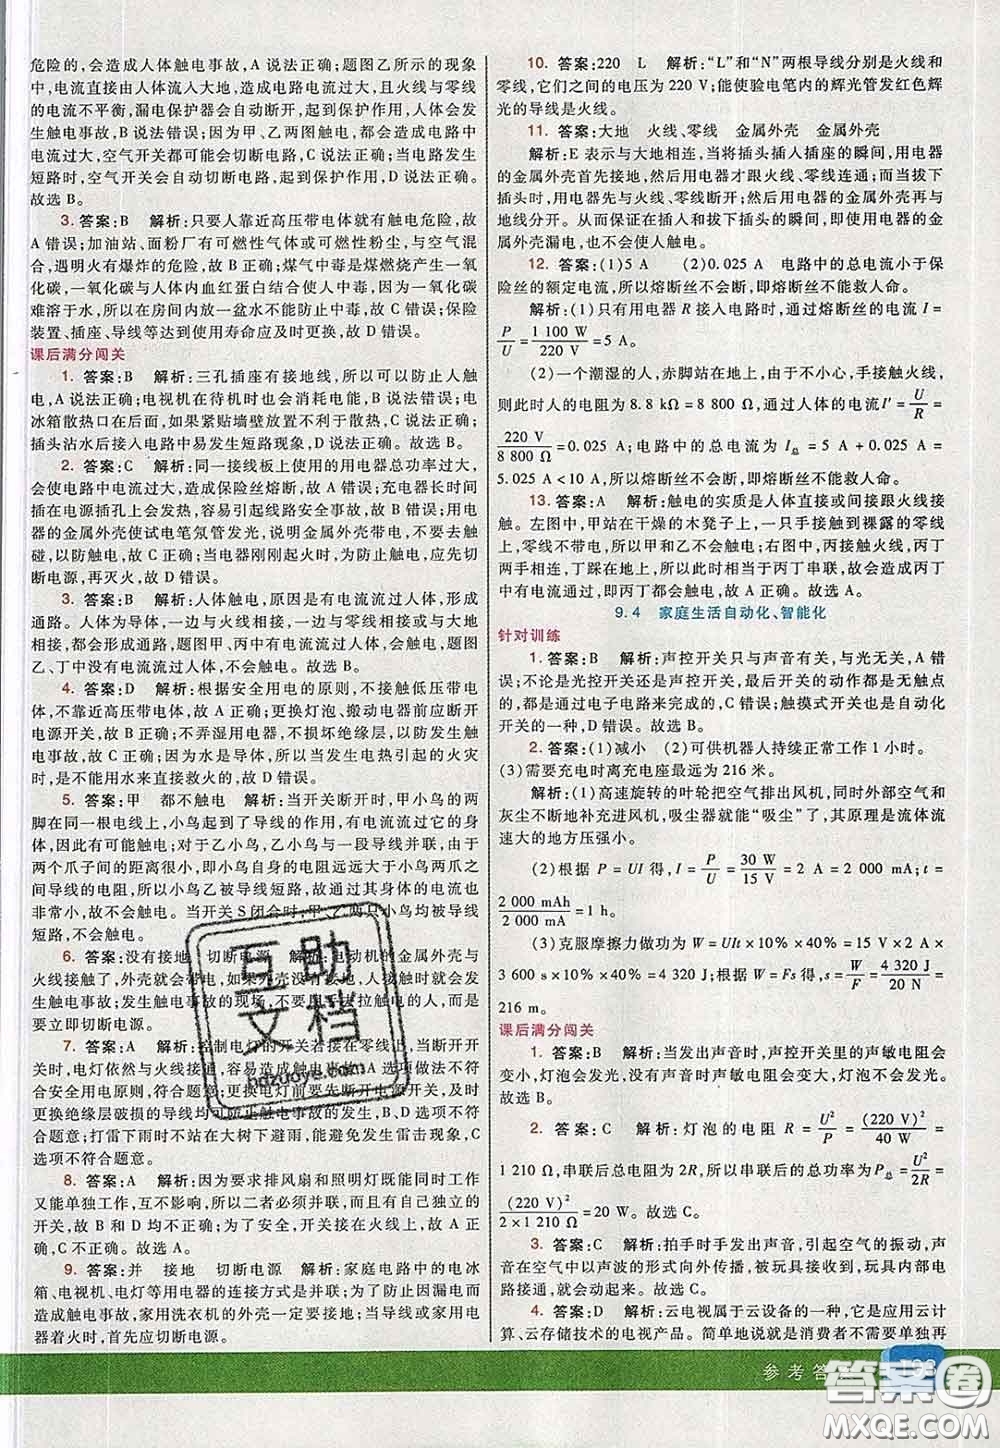 危险的,会造成人体触电事故,A说法正确;题图乙所示的现象
中,电流直接由人体流入大地,会造成电路电流过大,且火线与零
线的电流不平衡,漏电保护器会自动断开,起到保护作用,人体会
发生触电事故,B说法错误;因为甲、乙两图触电,都会造成电路中
电流过大,空气开关都可能会切断电路,C说法正确;当电路发生
短路时,空气开关会自动切断电路,起到保护作用,D说法正确。
故选B。
3. 答案:B 解析:只要人靠近高压带电体就有触电危险,故
A错误;加油站、面粉厂有可燃性气体或可燃性粉尘,与空气混合
后,遇明火有爆炸的危险,故B正确;煤气中毒是煤燃烧产生一氧
化碳,一氧化碳与人体内血红蛋白结合使人中毒,而一氧化碳极
难溶于水,所以在房间内放一盆水不能防止中毒,故C错误;保险
装置、插座、导线等达到使用寿命应及时更换,故D错误。
课后满分闯关
1. 答案:B 解析:三孔插座有接地线,所以可以防止人触
电,A说法正确;电视机在待机时也会消耗电能,B说法错误;电
冰箱散热口在后面,如果紧贴墙壁放置不利于散热,C说法正确;
插头沾水后接入电路中易发生短路现象,D说法正确。故选B。
2. 答案:C 解析:同一接线板上使用的用电器总功率过大,
会使电路中电流过大,造成保险丝熔断,故A错误;充电器长时间
插在电源插孔上会发热,容易引起线路安全事故,故B错误;用电
器的金属外壳使试电笔氖管发光,说明金属外壳带电,不要去触
碰,以防触电,故C正确;当电器刚刚起火时,为防止触电,应先切
断电源,再灭火,故D错误。
3. 答案:B 解析:人体触电,原因是有电流流过人体,形成
通路。人体为导体,一边与火线相接,一边与零线或大地
相接,形成通路,题图甲、丙中有电流流过人体,为触电现象;题图
乙、丁中没有电流流过人体,不会触电。故选B。
4. 答案:D 解析:根据安全用电的原则,不接触低压带电
体,不靠近高压带电体,故A正确;更换灯泡、搬动电器前应断开
电源开关,故B正确;不弄湿用电器,不损坏绝缘层,以防发生触
电事故,故C正确;因为水是导体,所以因电热引起的火灾
时,不能用水来直接救火的,故D错误。
5. 答案:甲 都不触电 解析:当开关断开时,甲小鸟的两
脚在同一根电线上,小鸟起到了导线的作用,有电流流过它的身
体,因此有触电的可能;对于乙小鸟,乙鸟与一段导线并联,由于
两个爪子间的距离很小,即小鸟自身的电阻远远大于小鸟两爪之
间导线的电阻,所以小鸟乙被导线短路,故流过其身体的电流也
非常小,故不会触电。当开关S闭合时,甲、乙两只小鸟均被导线
短路,不会触电。
6. 答案:没有接地 切断电源 解析:电动机的金属外壳与
火线接触了,外壳就会带电,如果外壳没有接地,人接触后,会发
生触电事故;发生触电事故的现场,不要用手去拉触电的人,而是
要立即切断电源。
7. 答案:A 解析:控制电灯的开关若接在零线上,当断开开
关时,电灯依然与火线接通,容易造成触电事故,A选项做法不符
合安全用电原则,符合题意。更换电灯前要先断开电源开关,以
及更换绝缘层破损的导线均可防止触电事故的发生,B、D选项不
符合题意;打雷下雨时不在大树下避雨,可避免发生雷击现象,C
选项不符合题意。
8. 答案:A 解析:因为要求排风扇和照明灯既能同时工作
又能单独工作,互不影响,所以二者必须并联,且有自己独立的
开关,故B和D均不正确;为了安全,开关接在火线上,故A正
确,C不正确。故选A。
9. 答案:并 接地 切断电源 解析:家庭电路中的电冰
箱、电视机、电灯等用电器的连接方式是并联;为了防止因漏电而
造成触电事故,家用洗衣机的外壳一定要接地;当导线或家用电
器着火时,首先应切断电源。
10. 答案:220 L 解析:“L”和“N”两根导线分别是火线和
零线,它们之间的电压为220 V;能使验电笔内的辉光管发红色辉
光的导线是火线。
11. 答案:大地 火线、零线 金属外壳 金属外壳
解析:E表示与大地相连,当将插头插入插座的瞬间,用电器
的金属外壳首先接地,然后用电器才跟火线、零线连通;而当将插
头拔出时,用电器先与火线、零线断开,然后用电器的金属外壳再与
地线分开。从而保证在插入和拔下插头的瞬间,即使用电器的金
属外壳漏电,也不会使人触电。
12. 答案:(1)5 A (2)0.025 A 电路中的总电流小于保
险丝的额定电流,所以熔断丝不会断,即熔断丝不能救人命。
解析:(1)只有用电器R接入电路时,通过熔断丝的电流I=
P/U=1 100 W/220 V=5 A。
(2)一个潮湿的人,赤脚站在地上,由于不小心,手接触火线,
则此时人的电阻为8.8 kΩ=8 800 Ω,通过人体的电流I′=U/R=
220 V/8 800 Ω=0.025 A;电路中的总电流为I总=5 A+0.025 A=
5.025 A<10 A,所以熔断丝不会断,即熔断丝不能救人命。
13. 答案:A 解析:触电的实质是人体直接或间接跟火线接
触。左图中,甲站在干燥的木凳子上,一只手接触到裸露的零线
上,零线不带电,所以甲和乙不会触电;右图中,丙接触火线,丙丁
两手相连,丁踩在地上,所以相当于丙丁串联,故此时丙丁
中有电流通过,即丙丁都会触电,故A正确。故选A。
9.4 家庭生活自动化、智能化
针对训练
1. 答案:B 解析:声控开关只与声音有关,与光无关,A错
误;不论是光控开关还是声控开关,最后开关的动作都是无触点
的,都是通过电子电路来完成的,C错误;触摸式开关也是自动化
开关的一种,D错误。故选B。
2. 答案:(1)减小 (2)可供机器人持续正常工作1小时。
(3)需要充电时离充电座最远为216米。
解析:(1)高速旋转的叶轮把空气排出风机,同时外部空气和
灰尘不断地补充进风机,吸尘器就能“吸尘”了,其原理是流体流
速大的地方压强小。
(2)根据P=UI得,I=P/U=30 W/15 V=2 A=2 000 mA;t=
2 000 mAh/2 000 mA=1 h。
(3)克服摩擦力做功为W=UIt×10%×40%=15 V×2 A×
3 600 s×10%×40%=4 320 J;根据W=Fs得,s=W/F=4 320 J/20 N=
216 m。
课后满分闯关
1. 答案:B 解析:当发出声音时,声控开关里的声敏电阻会
变小,灯泡会发光,没有声音时声敏电阻会变大,灯泡不会发光。
故选B。
2. 答案:C 解析:灯泡的电阻R=U²/P=(220 V)²/40 W=
1 210 Ω,串联后总电阻为2R,所以串联后的总功率为P总=U²/2R=
(220 V)²/2×1 210 Ω=20 W。故选C。
3. 答案:C 解析:拍手时手发出声音,引起空气的振动,声音
在空气中以声波的形式向外传播,被玩具接收到,玩具内部的
电路接通。故选C。
4. 答案:D 解析:云电视属于云设备的一种,它是应用云计
算、云存储技术的电视产品。简单地说就是消费者不需要单独再
参考答
互助
文档
hdzuoye.com
答案圈
MXQE.COM